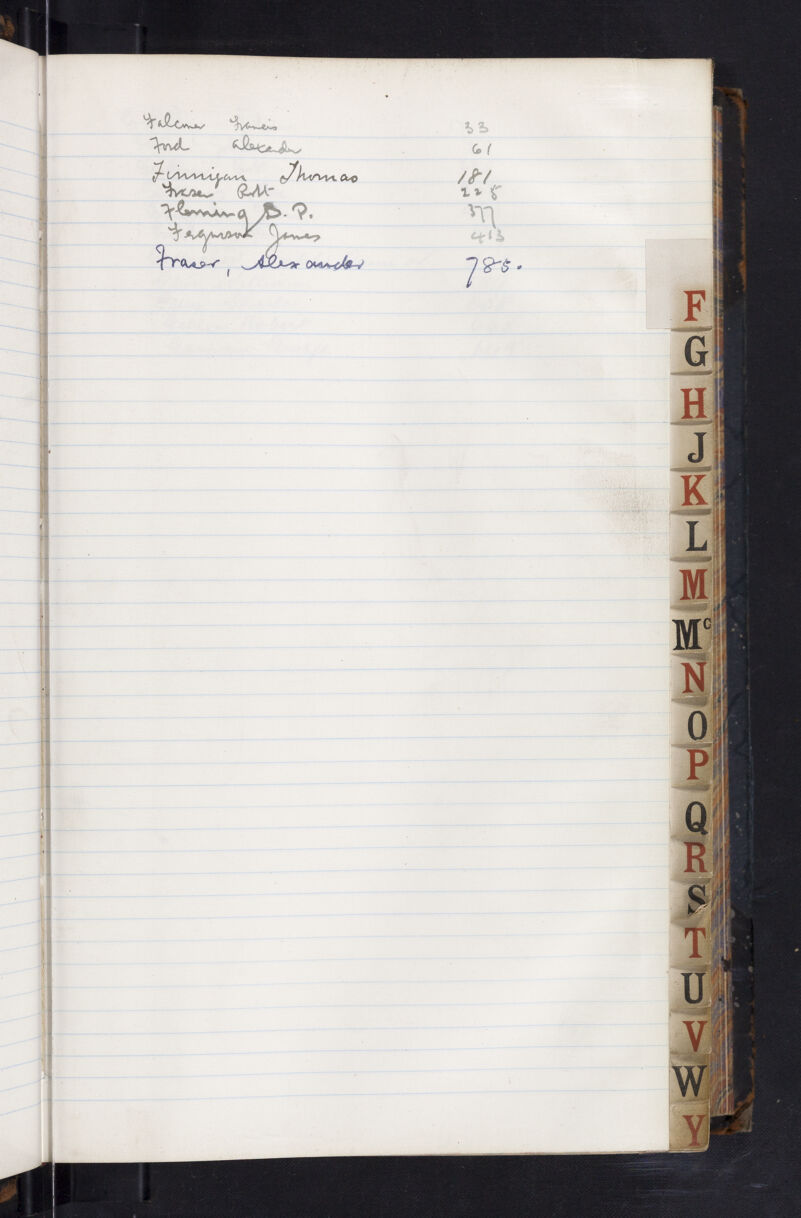 Falconer Francis 33
Ford Alexander 61
Finnigan Thomas 181
Fraser Robt 228
Fleming B. P. 377
Ferguson James 453
Fraser, Alexander 785.
F
G
H
J
K
L
M
Mc
N
O
P
Q
R
S
T
U
V
W
Y